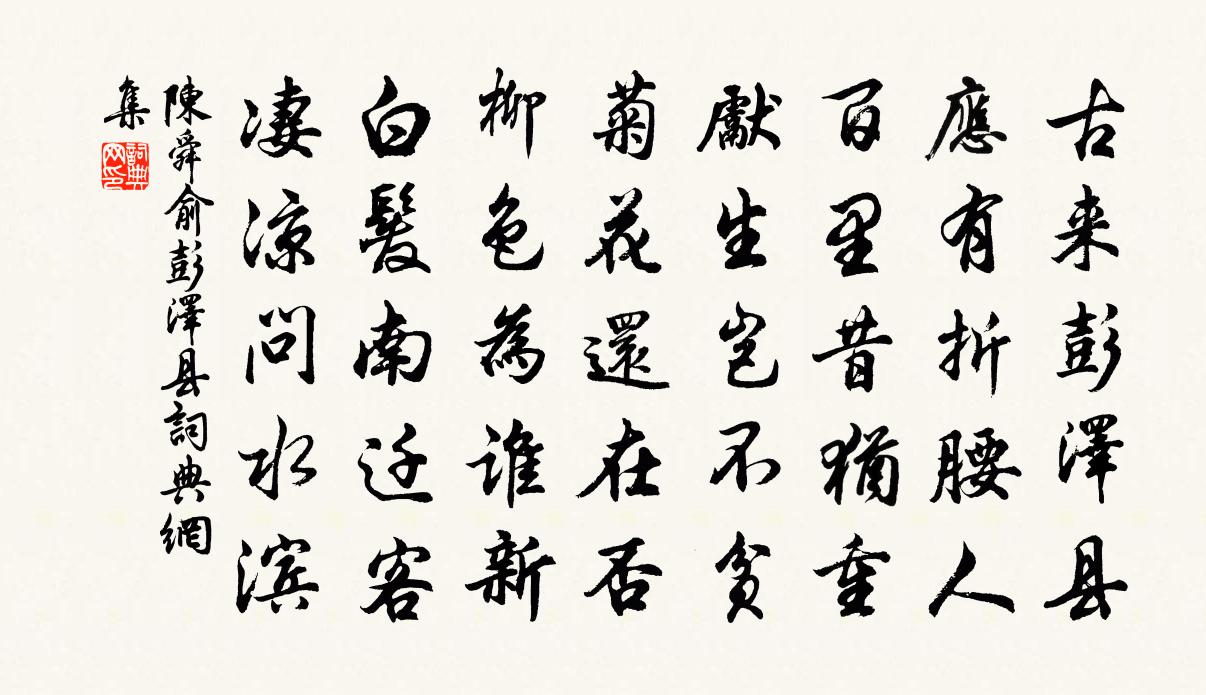 古来彭澤县
應有折腰人
百里昔猶重
獻生岂不貧
菊花還在否
柳色為誰新
白髮南迁客
淒涼問水滨
陳舜俞彭澤县詞典網
集
詞典
网印